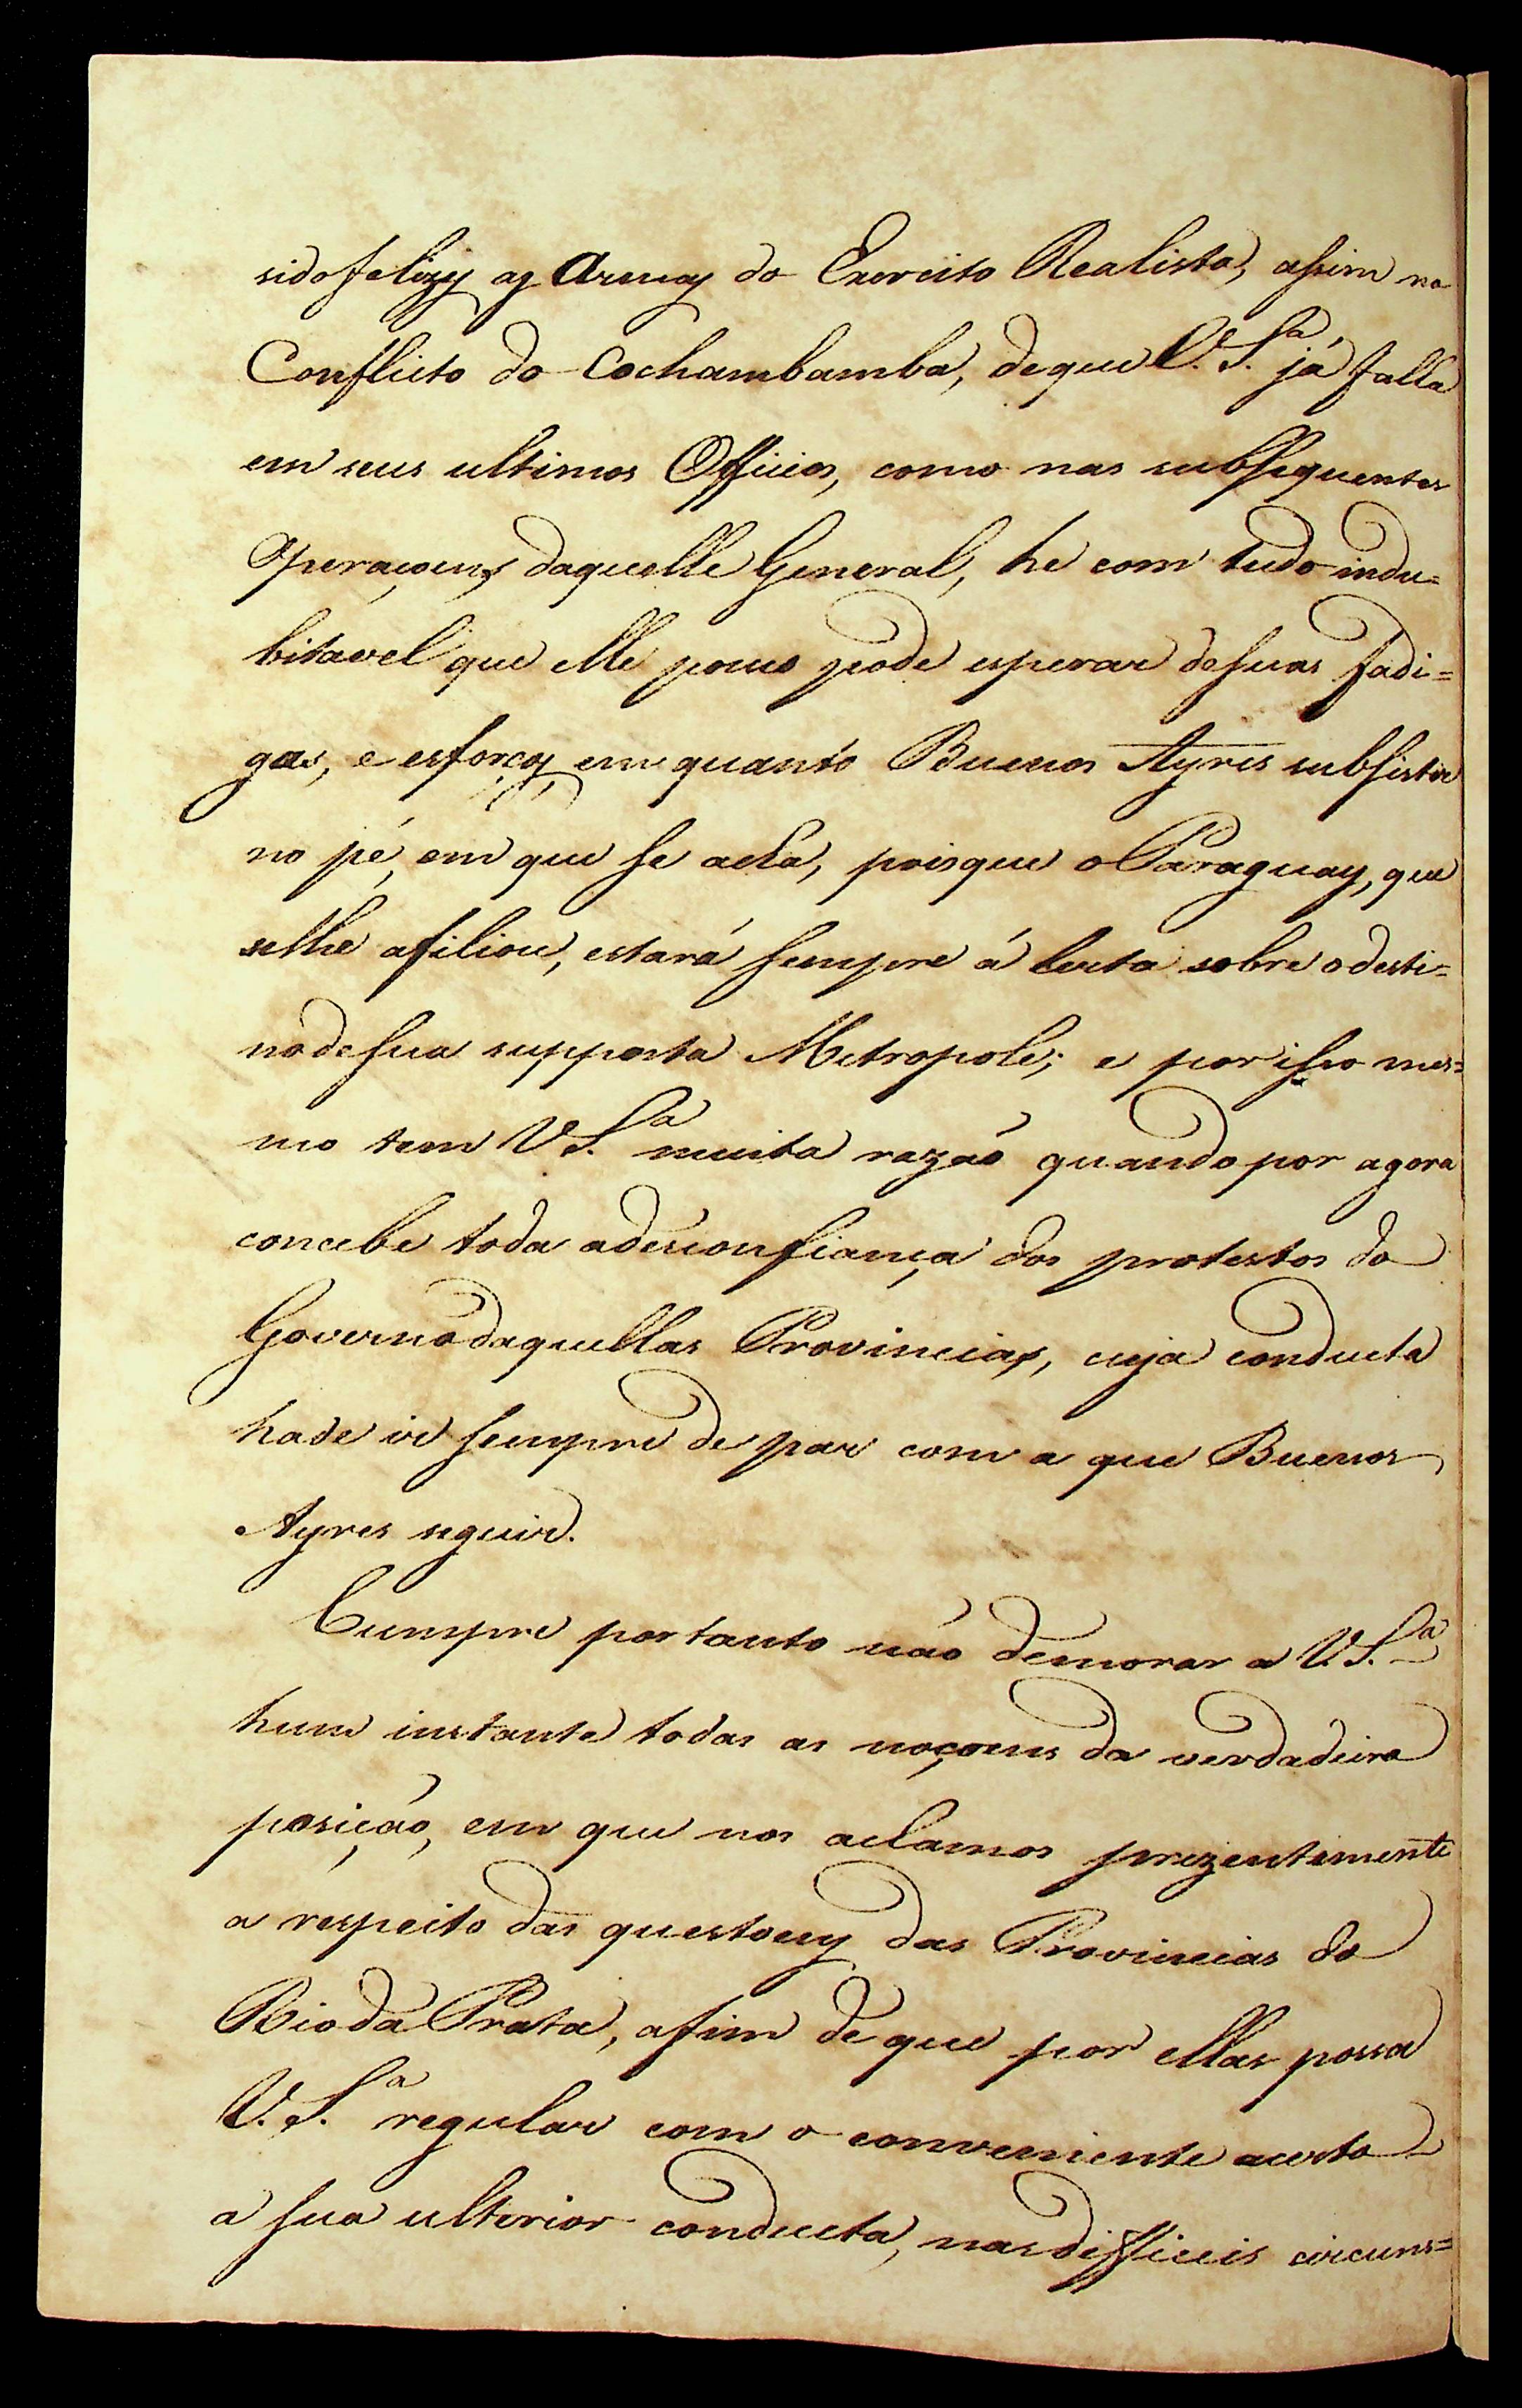 sido felizes as Armas do Exercito Realista, assim no
Conflicto de Cochambamba, de que V. S.ª já falla
em seus ultimos Officios, como nas subsequentes
Operaçoens daquelle General, he com tudo indu=
bitavel que elle pouco pode esperar de suas fadi=
gas, e esforços, em quanto Buenos Ayres subsistir
no pé, em que se acha, pois que o Paraguay, que
se lhe afiliou, estará sempre á lerta sobre o desti=
no de sua supposta Metropole; e por isso mes=
mo tem V S.ª muita razão quando por agora
concebe toda a desconfiança dos protestos do
Governo daquellas Provincias, cuja conducta
hade ir sempre de par com a que Buenos
Ayres seguir.
Cumpre portanto não demorar a V. S.ª
hum instante todas as noçoens da verdadeira
posição, em que nos achamos prezentemente
a respeito das questoens das Provincias do
Rio da Prata, afim de que por ellas possa
V. S.ª regular com o conveniente acerto
a sua ulterior conducta, nas difficeis circuns=